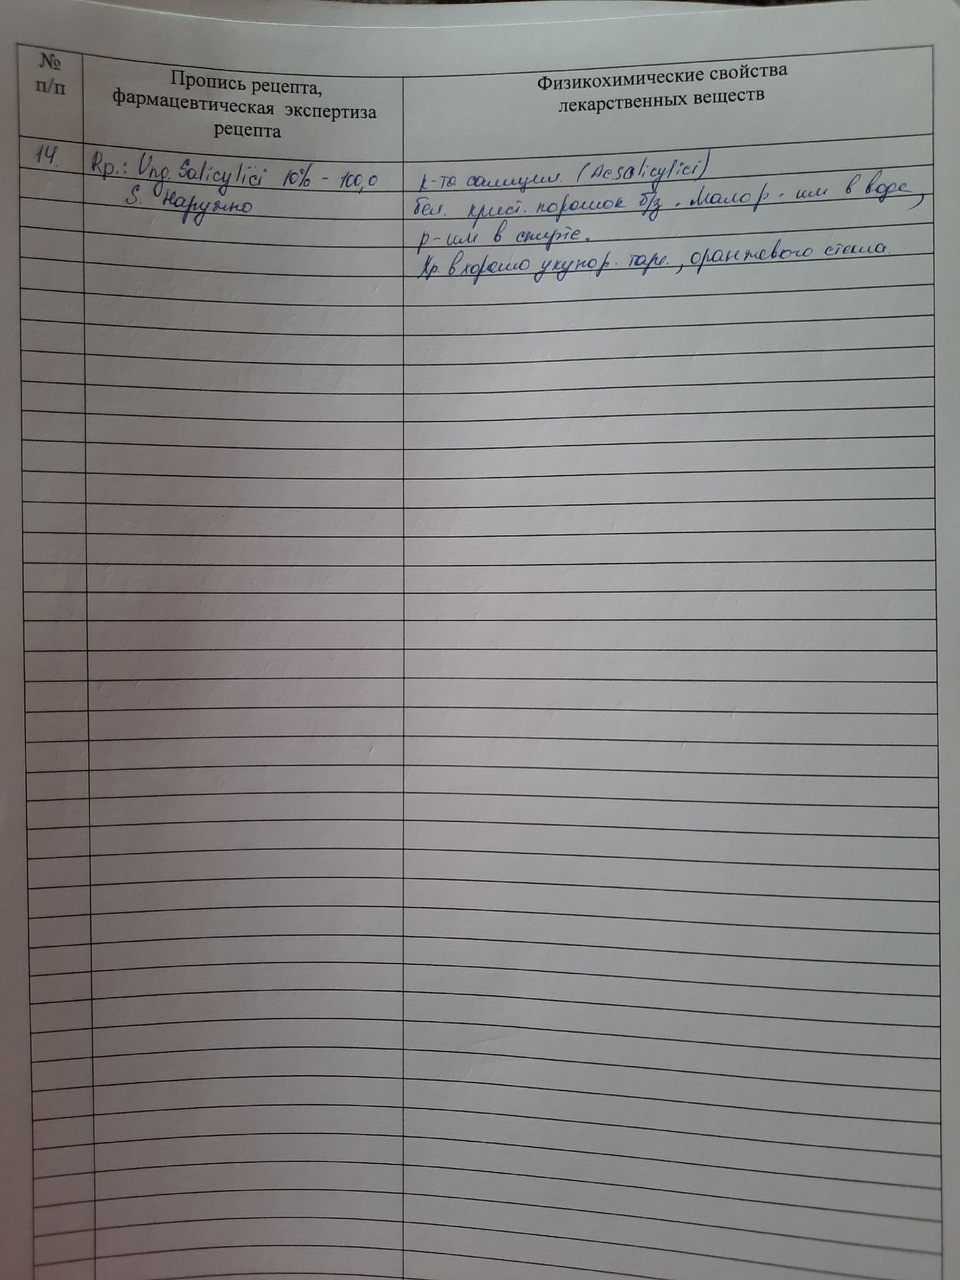 №
п/п
Пропись рецепта,
фармацевтическая экспертиза
рецепта
Физикохимические свойства
лекарственных веществ
14.
Rp.: Ung. Salicylici 10% - 100,0
S. Наружно
к-та салицил. (Ac salicylici)
бел. крист. порошок б/з. Мало р-им в воде,
р-им в спирте.
Хр. в хорошо укупор. таре, оранжевого стекла